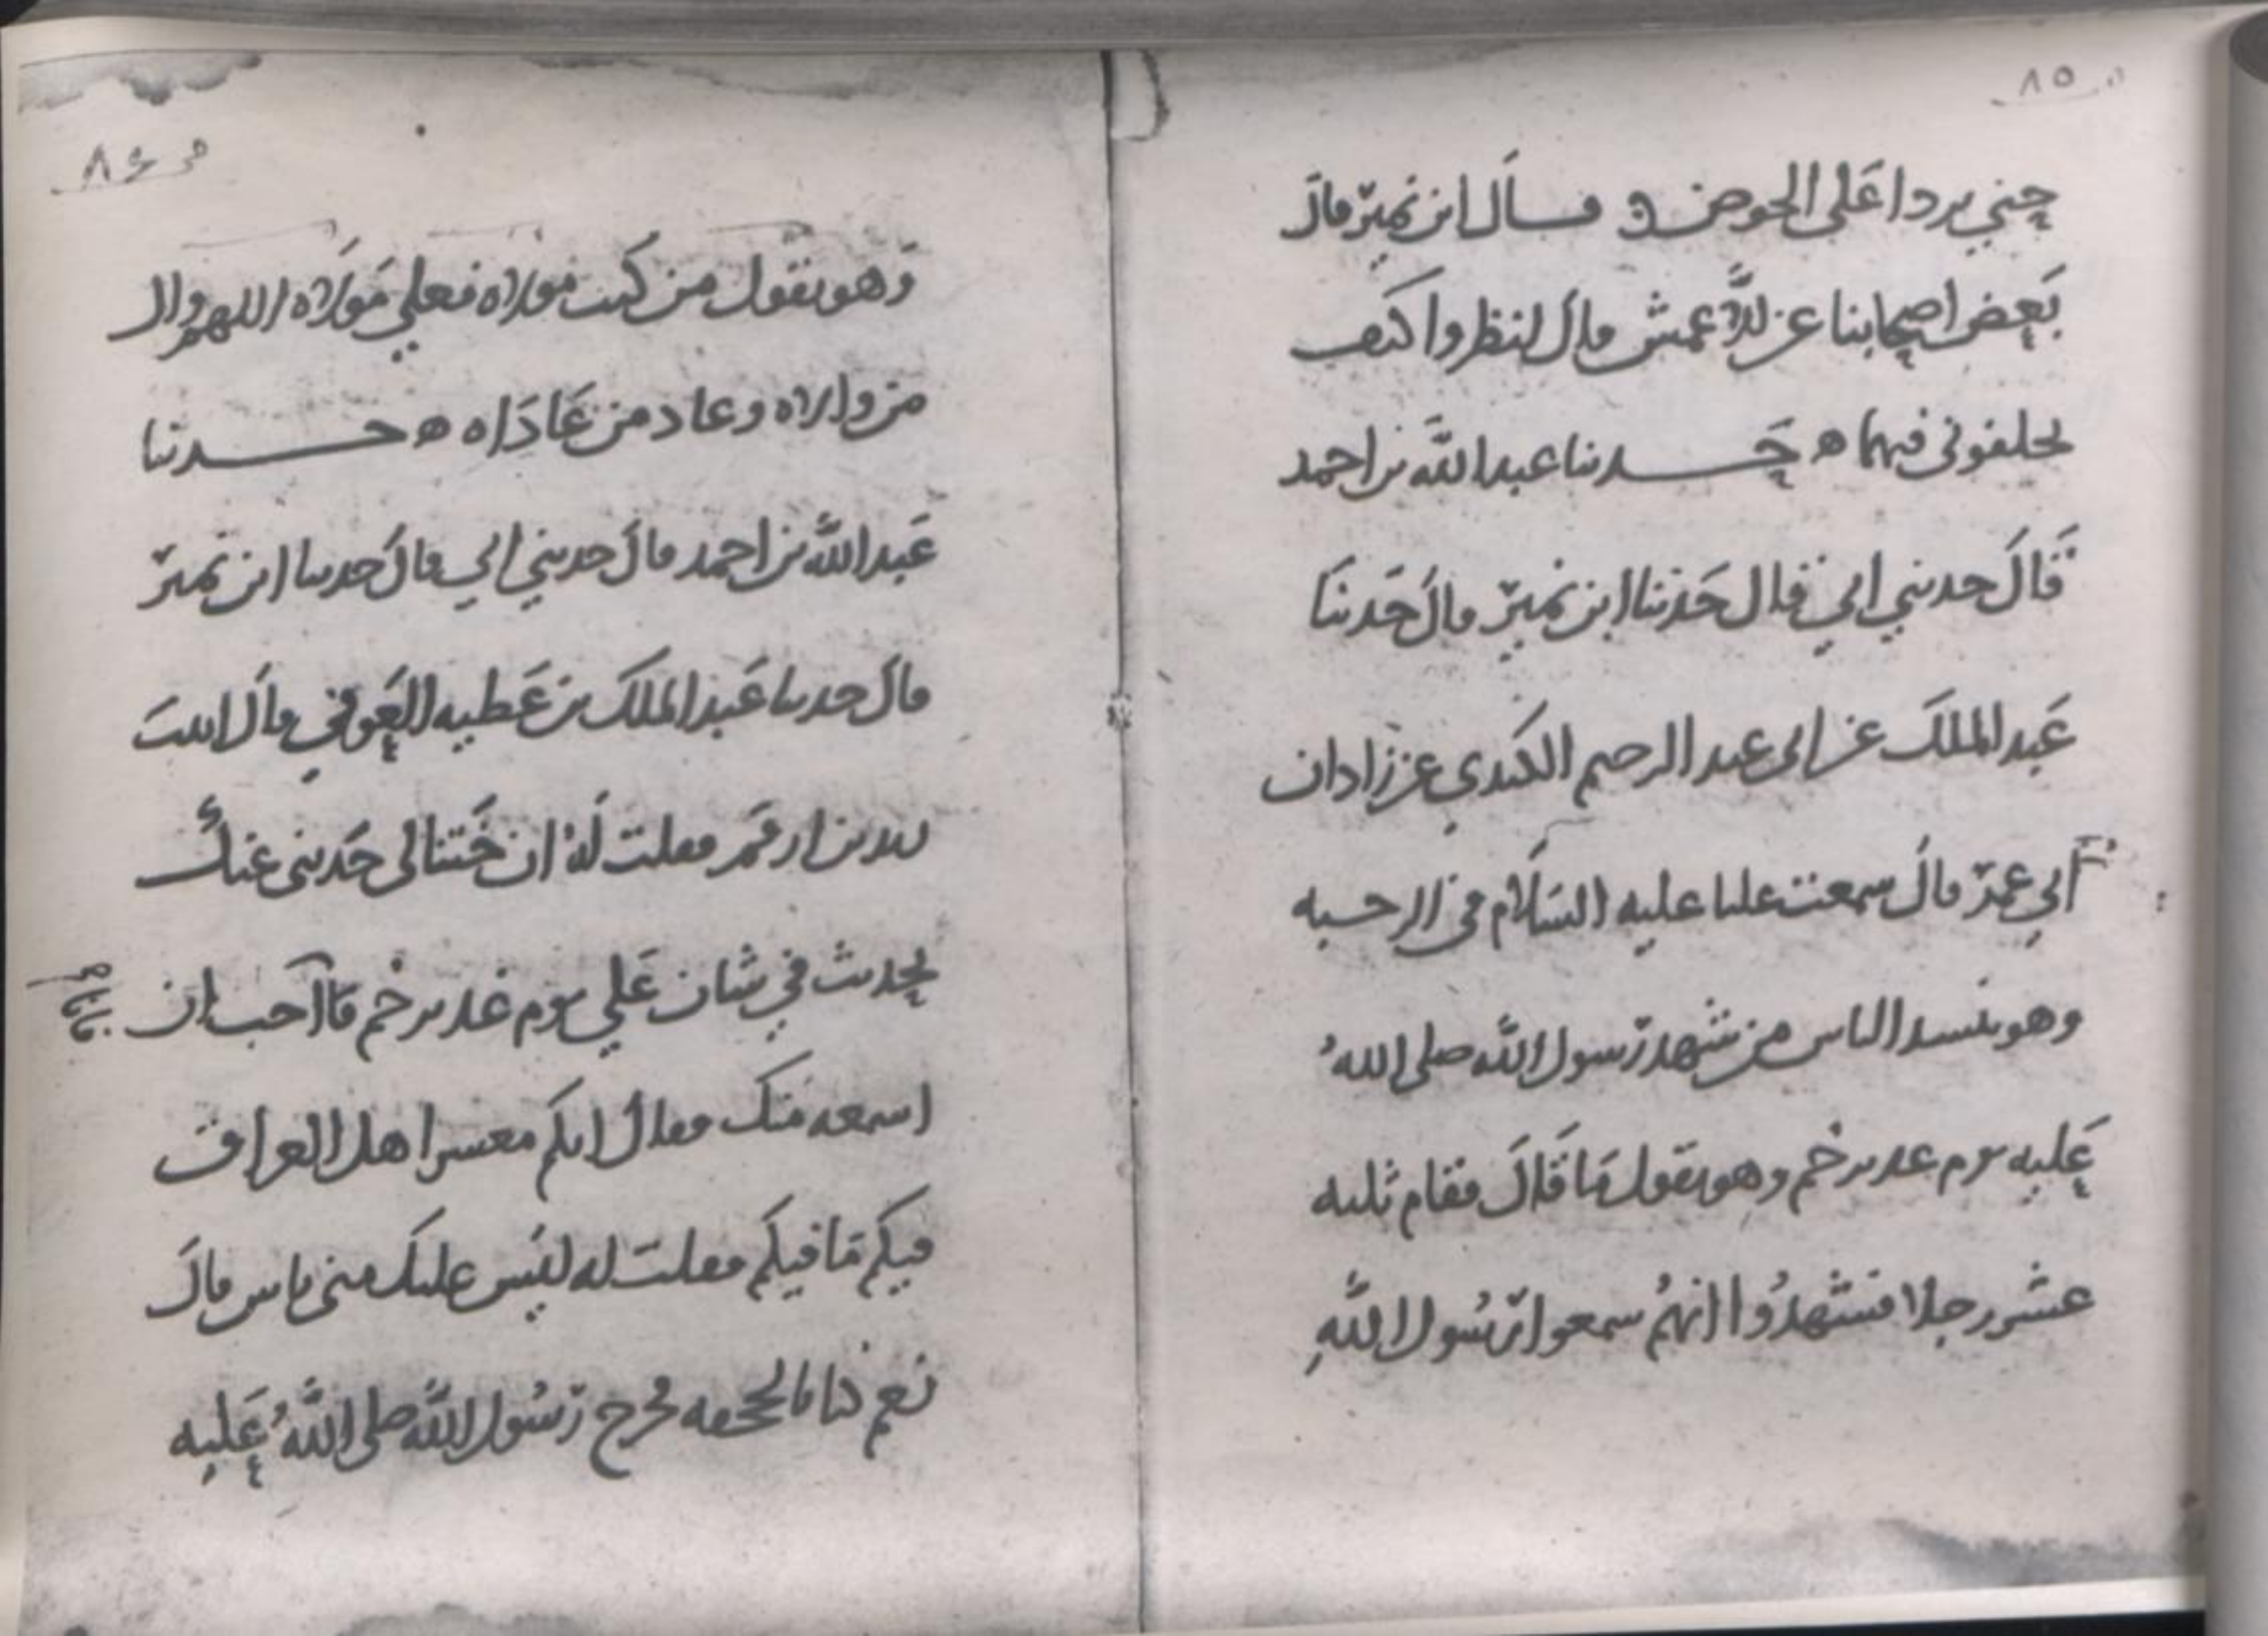 ٨٥
حتي يردا علي الحوض ه قال ابن نمير قال
بعض اصحابنا عن الاعمش قال انظروا كيف
تخلفوني فيهما ه حدثنا عبد الله بن احمد
قال حدثني ابي قال حدثنا ابن نمير قال حدثنا
عبد الملك عن ابي عبد الرحيم الكندي عن زادان
ابي عمر قال سمعت عليا عليه السلام في الرحبه
وهو ينشد الناس من شهد رسول الله صلى الله
عليه يوم غدير خم وهو يقول ما قال فقام ثلثه
عشر رجلا فشهدوا انهم سمعوا رسول الله
٨٦
وهو يقول من كنت مولاه فعلي مولاه اللهم وال
من والاه وعاد من عاداه ه حدثنا
عبد الله بن احمد قال حدثني ابي قال حدثنا ابن نمير
قال حدثنا عبد الملك بن عطيه العوفي قال اتيت
زيد بن ارقم فقلت له ان ختنا لي حدثني عنك
بحديث في شان علي يوم غدير خم فانا احب ان
اسمعه منك فقال انكم معشر اهل العراق
فيكم ما فيكم فقلت له ليس عليك مني باس قال
نعم كنا بالجحفه فخرج رسول الله صلى الله عليه